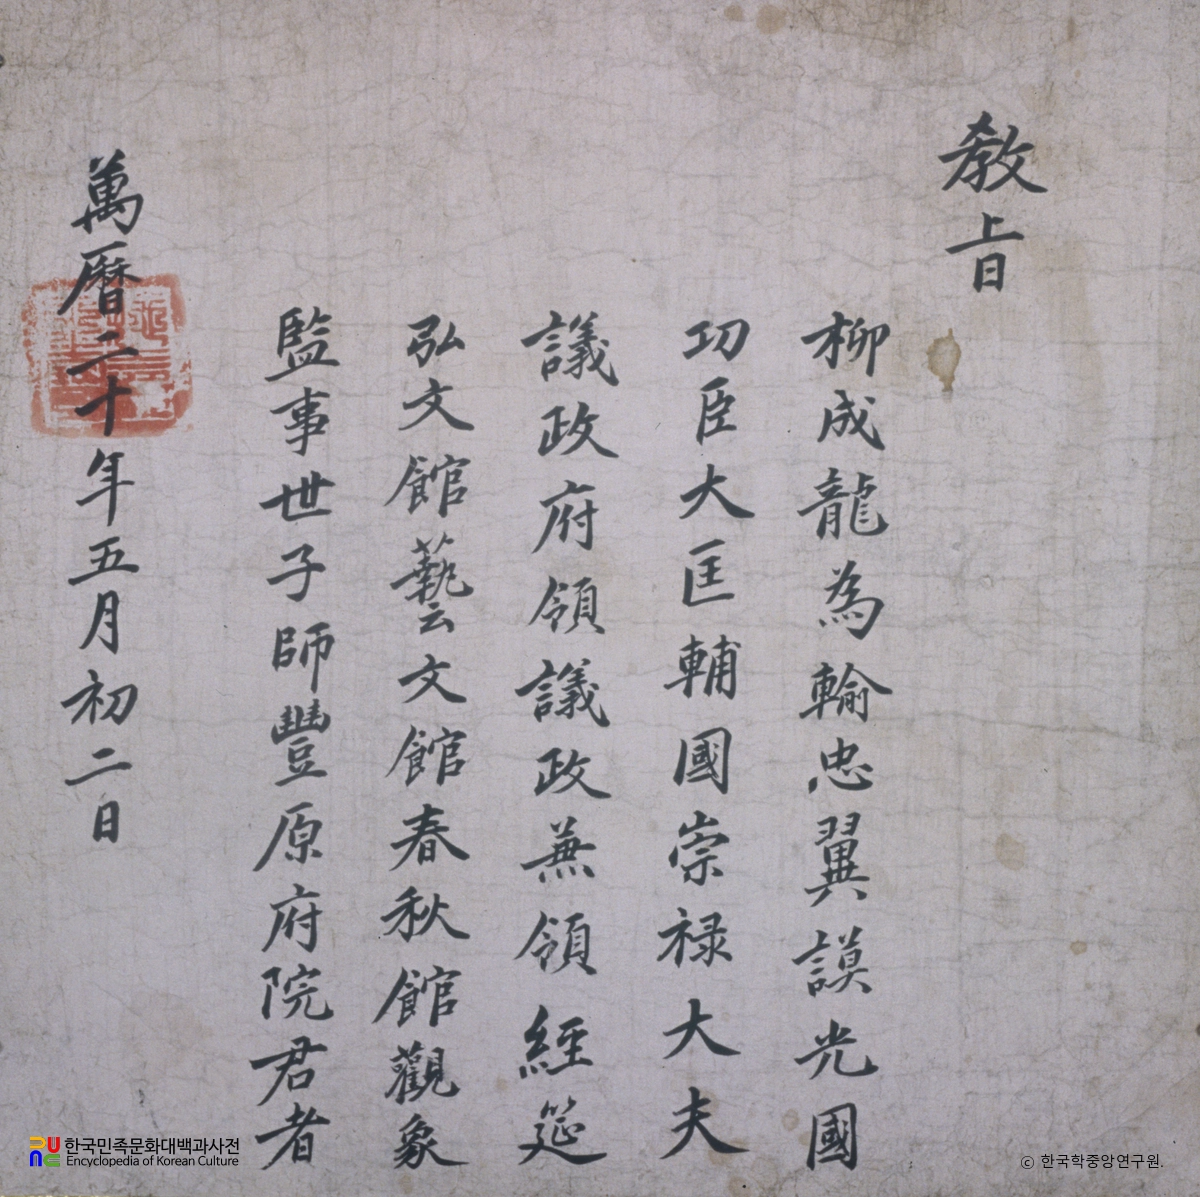 教旨
柳成龍為輸忠翼謨光國
功臣大匡輔國崇禄大夫
議政府領議政兼領經筵
弘文館藝文館春秋館觀象
監事世子師豐原府院君者
萬曆二十年五月初二日
한국민족문화대백과사전
Encyclopedia of Korean Culture
ⓒ 한국학중앙연구원.